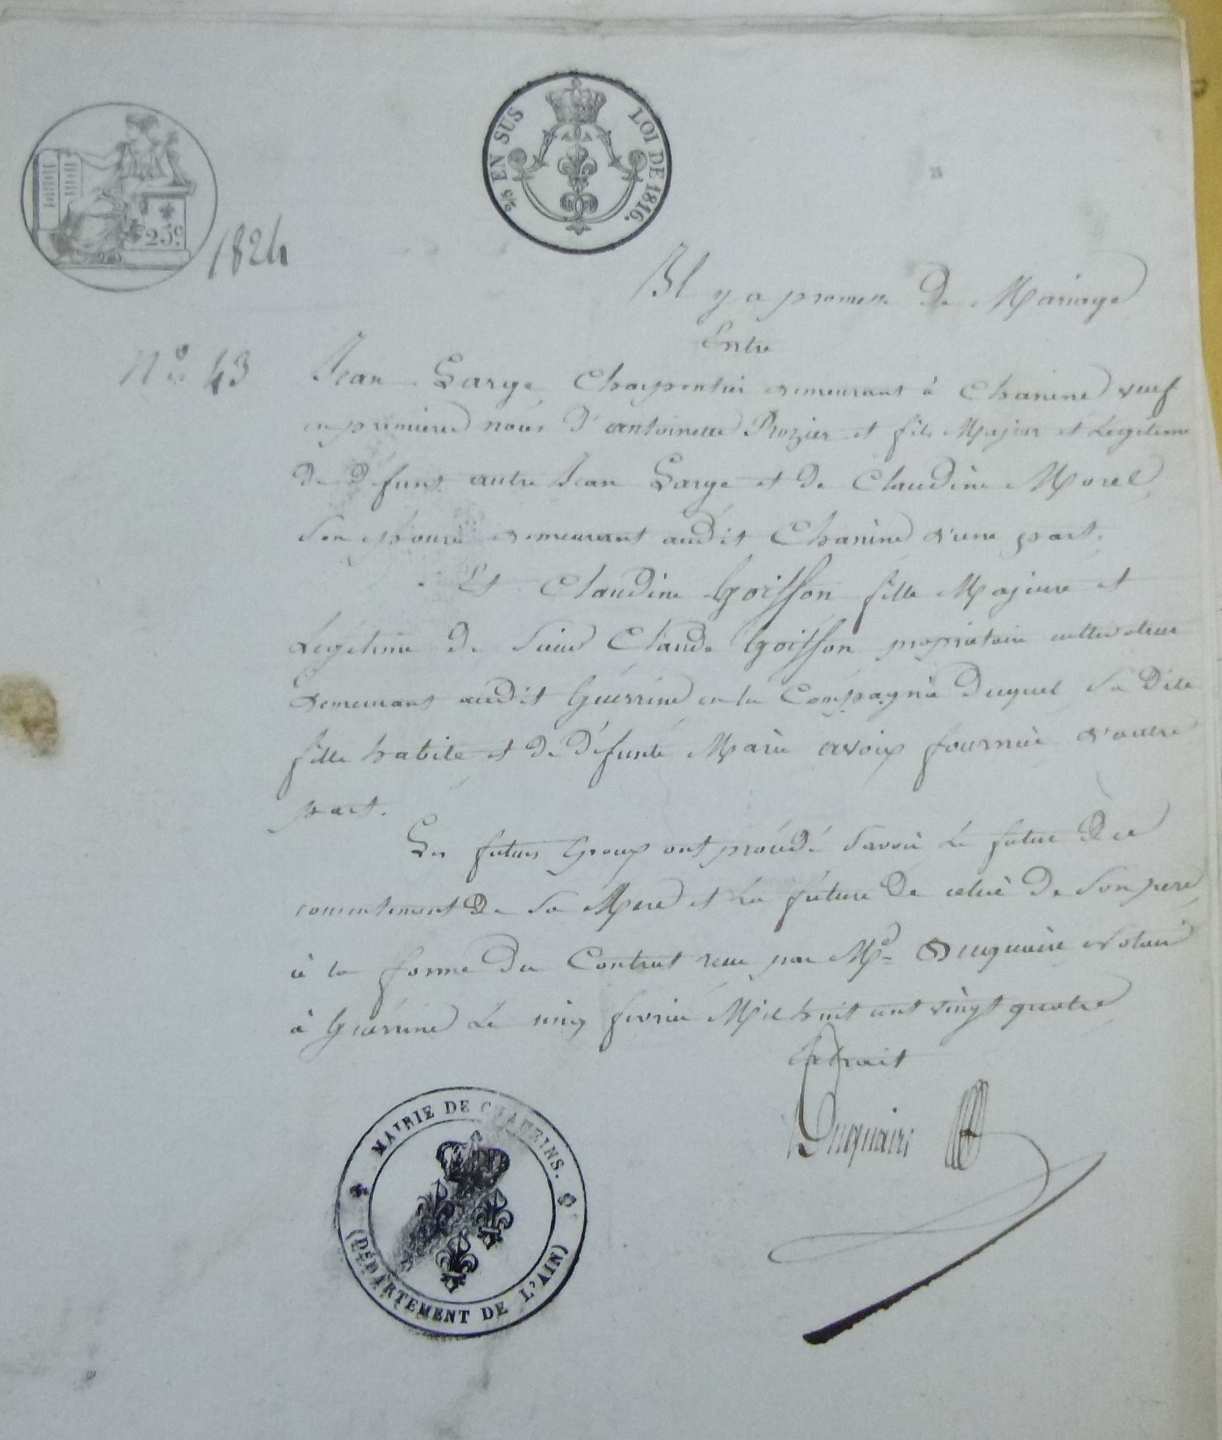 2/5 EN SUS LOI DE 1816.
25c.
1824
Il y a promesse De Mariage
Entre
No. 43
Jean Large Charpentier demeurant à Chanéins veuf
en premières noces d'antoinette Rozier et fils Majeur et Légitime
De Défunt autre Jean Large et De Claudine Morel
Son épouse demeurant audit Chaneins d'une part.
Et Claudine Goiffon fille Majeure et
Légitime De Sieur Claude Goiffon propriétaire cultivateur
demeurant audit Guérreins en la Compagnie Duquel Sa Dite
fille habite et De Défunte Marie avoix fournier d'autre
part.
Les futurs Epoux ont procédé Savoir Le futur De
consentement De Sa Mere et La future De celui De Son pere
à la forme Du Contrat recu par Me Duquaire Notaire
à Guérreins Le cinq fevrier Mil huit cent vingt quatre
Extrait
Duquaire
MAIRIE DE CHANEINS.
(DÉPARTEMENT DE L'AIN)